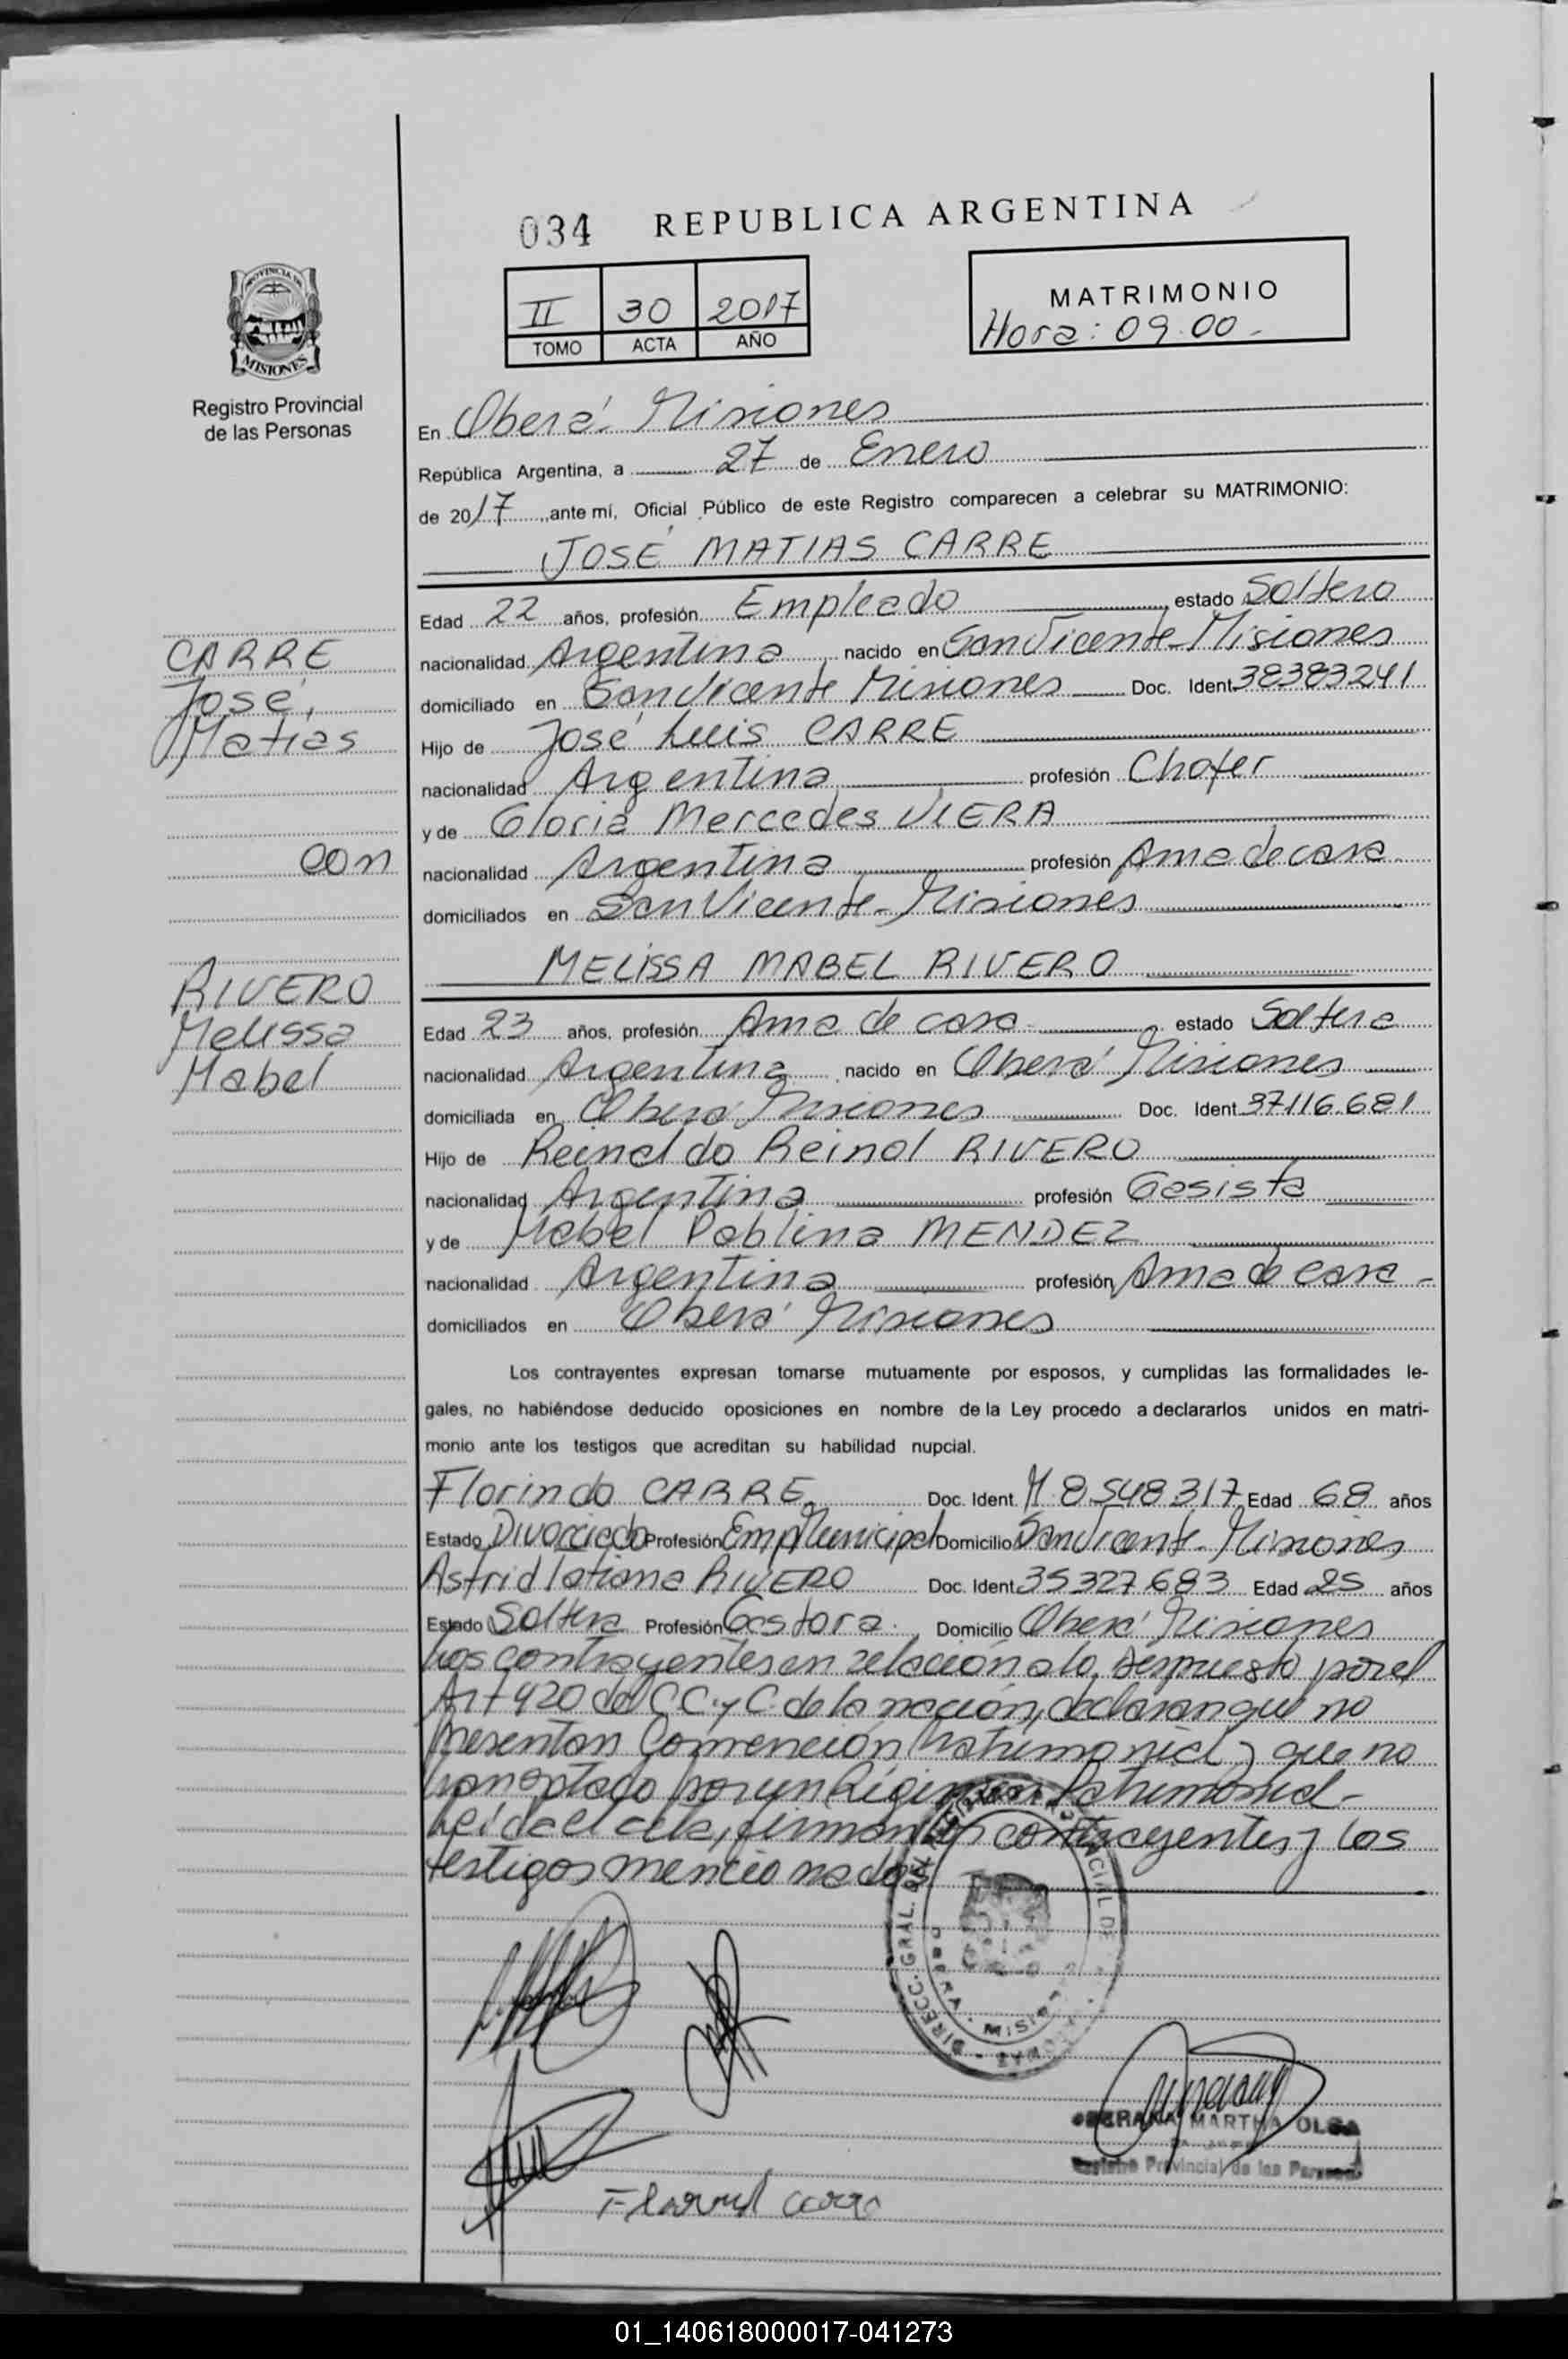 034 REPUBLICA ARGENTINA
II 30 2017
TOMO ACTA AÑO
MATRIMONIO
Hora: 09.00-
PROVINCIA DE
MISIONES
Registro Provincial
de las Personas
En Oberá. Misiones
República Argentina, a 27 de Enero
de 2017, ante mí, Oficial Público de este Registro comparecen a celebrar su MATRIMONIO:
JOSÉ MATIAS CARRE
Edad 22 años, profesión Empleado estado Soltero
nacionalidad Argentina nacido en San Vicente-Misiones
domiciliado en San Vicente Misiones Doc. Ident 38383241
Hijo de José Luis CARRE
nacionalidad Argentina profesión Chofer
y de Gloria Mercedes VIERA
nacionalidad Argentina profesión Ama de casa
domiciliados en San Vicente-Misiones
CARRE
José,
Matias
con
RIVERO
Melissa
Mabel
MELISSA MABEL RIVERO
Edad 23 años, profesión Ama de casa estado Soltera
nacionalidad Argentina nacido en Oberá Misiones
domiciliada en Oberá Misiones Doc. Ident 37.116.681
Hijo de Reinaldo Reinol RIVERO
nacionalidad Argentina profesión Gasista
y de Mabel Pablina MENDEZ
nacionalidad Argentina profesión Ama de casa-
domiciliados en Oberá Misiones
Los contrayentes expresan tomarse mutuamente por esposos, y cumplidas las formalidades le-
gales, no habiéndose deducido oposiciones en nombre de la Ley procedo a declararlos unidos en matri-
monio ante los testigos que acreditan su habilidad nupcial.
Florindo CARRE Doc. Ident. M 8.548.317 Edad 68 años
Estado Divorciado Profesión Emp Municipal Domicilio San Vicente-Misiones
Astrid Tatiana RIVERO Doc. Ident 35327683 Edad 25 años
Estado Soltera Profesión Gestora. Domicilio Oberá Misiones
Los contrayentes en relación a lo dispuesto por el
Art 420 del C.C. y C. de la nación, declaran que no
presentan Convención Matrimonial y que no
han optado por un Régimen Patrimonial-
Leída el acta, firman los contrayentes y los
testigos mencionados
DIRECC. GRAL. DEL REGISTRO PROVINCIAL DE
MARTHA OLGA
Registro Provincial de las Personas
01_140618000017-041273